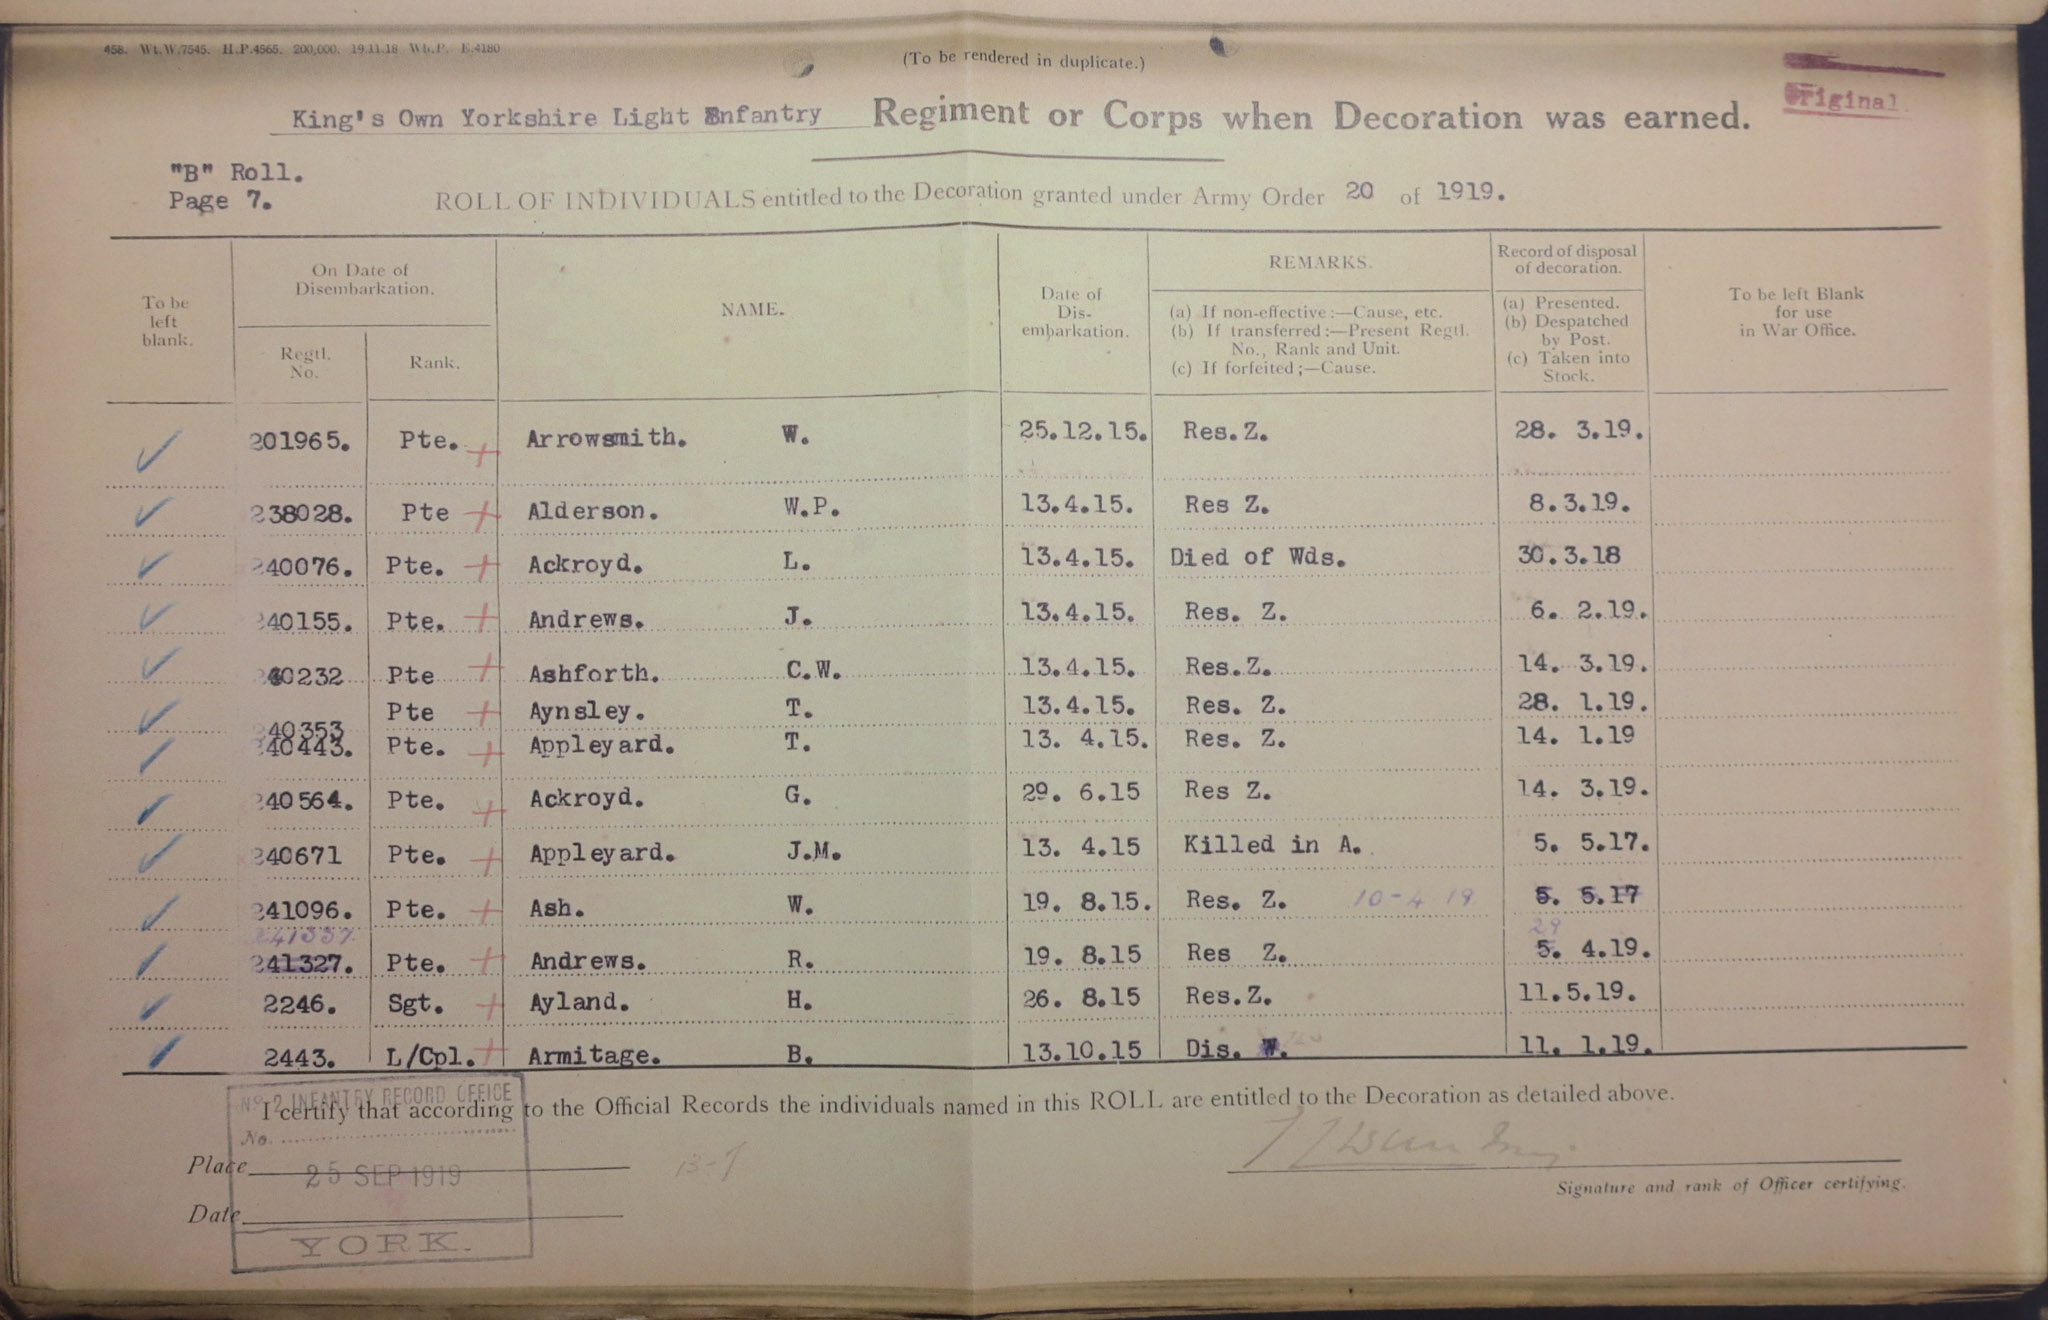 458. Wt.W.7545. H.P.4565. 200,000. 19.11.18 Wh.P. E.4180
(To be rendered in duplicate.)
Original.
King's Own Yorkshire Light Infantry Regiment or Corps when Decoration was earned.
"B" Roll.
Page 7.
ROLL OF INDIVIDUALS entitled to the Decoration granted under Army Order 20 of 1919.
To be left blank.
On Date of Disembarkation.
Regtl. No.
Rank.
NAME.
Date of Dis-embarkation.
REMARKS.
(a) If non-effective:—Cause, etc.
(b) If transferred:—Present Regtl. No., Rank and Unit.
(c) If forfeited;—Cause.
Record of disposal of decoration.
(a) Presented.
(b) Despatched by Post.
(c) Taken into Stock.
To be left Blank for use in War Office.
201965. Pte. Arrowsmith. W. 25.12.15. Res.Z. 28. 3.19.
238028. Pte Alderson. W.P. 13.4.15. Res Z. 8.3.19.
240076. Pte. Ackroyd. L. 13.4.15. Died of Wds. 30.3.18
240155. Pte. Andrews. J. 13.4.15. Res. Z. 6. 2.19.
240232 Pte Ashforth. C.W. 13.4.15. Res.Z. 14. 3.19.
240353 Pte Aynsley. T. 13.4.15. Res. Z. 28. 1.19.
240443. Pte. Appleyard. T. 13. 4.15. Res. Z. 14. 1.19
240564. Pte. Ackroyd. G. 29. 6.15 Res Z. 14. 3.19.
240671 Pte. Appleyard. J.M. 13. 4.15 Killed in A. 5. 5.17.
241096. Pte. Ash. W. 19. 8.15. Res. Z. 10-4 19 5. 5.17
241337 29
241327. Pte. Andrews. R. 19. 8.15 Res Z. 5. 4.19.
2246. Sgt. Ayland. H. 26. 8.15 Res.Z. 11.5.19.
2443. L/Cpl. Armitage. B. 13.10.15 Dis. W. 11. 1.19.
No 2 INFANTRY RECORD OFFICE
I certify that according to the Official Records the individuals named in this ROLL are entitled to the Decoration as detailed above.
No.
Place
25 SEP 1919
Signature and rank of Officer certifying.
Date
YORK.